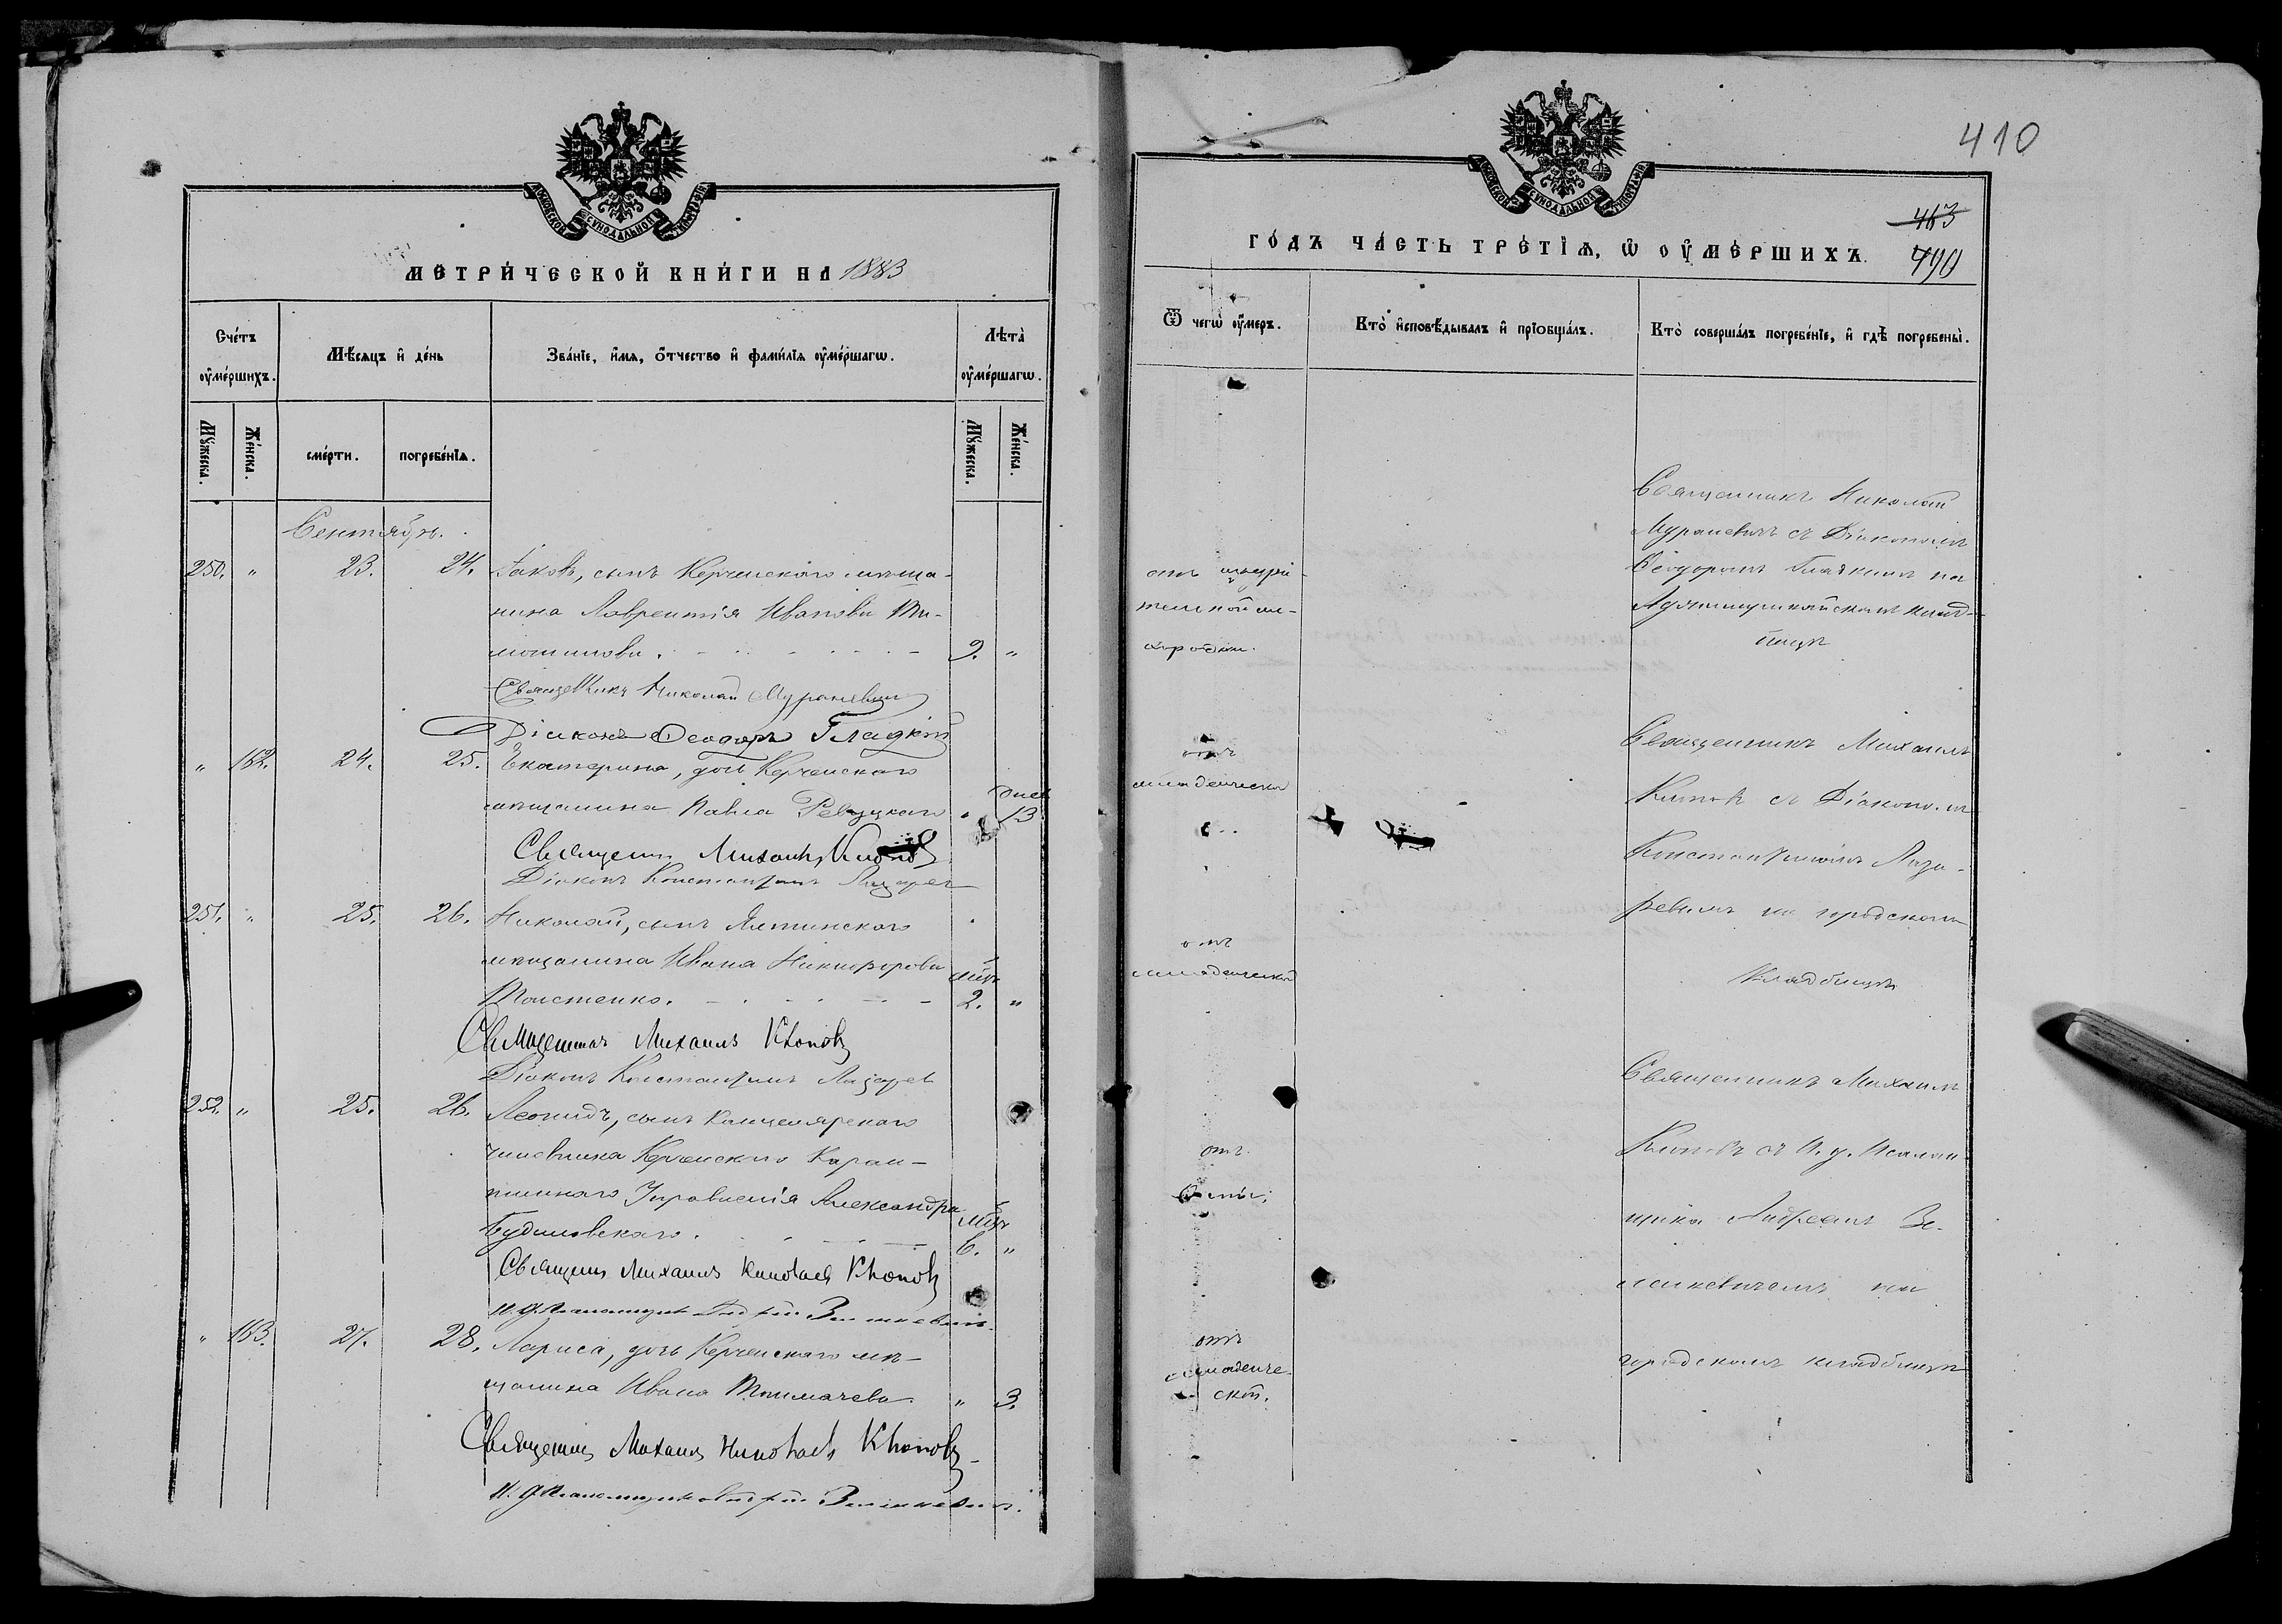 МОСКОВСКОЙ СѴНОДАЛЬНОЙ ТИПОГРАФІИ
МЕТРИ́ЧЕСКОЙ КНИ́ГИ НА 1883
Сче́тъ ᲂу҆ме́ршихъ.
Мѣ́сяцъ и҆ де́нь
Зва́нїе, и҆́мѧ, ѻ҆́тчество и҆ фами́лїѧ ᲂу҆ме́ршагѡ.
Лѣ́та ᲂу҆ме́ршагѡ.
Мꙋ́жеска.
Же́нска.
сме́рти.
погребе́нїѧ.
Мꙋ́жеска.
Же́нска.
Сентябрь.
250. " 23. 24. Іаковъ, сынъ Керченскаго мѣща-
нина Лаврентія Иванова Ти-
мошинова. 9. "
Священникъ Николай Мураневич
Діаконъ Феодоръ Гладкій
" 162. 24. 25. Екатерина, дочь Керченскаго
мѣщанина Павла Ревуцкаго " дней 13
Священ. Михаилъ Клоповъ
Діаконъ Константинъ Лазарев
251. " 25. 26. Николай, сынъ Ялтинскаго
мѣщанина Ивана Никифорова
Толстенко. мѣс. 2. "
Священникъ Михаилъ Клоповъ
Діаконъ Константинъ Лазарев
252. " 25. 26. Леонидъ, сынъ Канцелярскаго
чиновника Керченскаго Каран-
тиннаго Управленія Александра
Будиловскаго. мѣс. 6. "
Священъ Михаилъ Николаев Клоповъ
И. д. Псаломщика Андрей Зелинкевич.
" 163. 27. 28. Лариса, дочь Керченскаго мѣ-
щанина Ивана Толмачева. " 3.
Священникъ Михаилъ Николаев Клоповъ
И. д. Псаломщика Андрей Зелинкевич.
410
МОСКОВСКОЙ СѴНОДАЛЬНОЙ ТИПОГРАФІИ
463
490
ГО́ДЪ ЧА́СТЬ ТРЕ́ТЇѦ, Ѡ҆ ОУ҆МЕ́РШИХЪ.
Ѿ чегѡ̀ ᲂу҆́меръ.
Кто̀ и҆сповѣ́дывалъ и҆ прїѻбща́лъ.
Кто̀ соверша́лъ погребе́нїе, и҆ гдѣ̀ погребены̀.
отъ
Священникъ Николай
Мураневичъ съ Діакономъ
Ѳеодоромъ Гладкимъ на
Аджимушкайскомъ клад-
бищѣ
отъ
младенческой
Священникъ Михаилъ
Клоповъ съ Діакономъ
Константиномъ Лаза-
ревымъ на городскомъ
кладбищѣ
отъ
младенческой
отъ
Оспы.
отъ
младенче-
ской.
Священникъ Михаилъ
Клоповъ съ И. д. Псалом-
щика Андреемъ Зе-
линкевичемъ на
городскомъ кладбищѣ